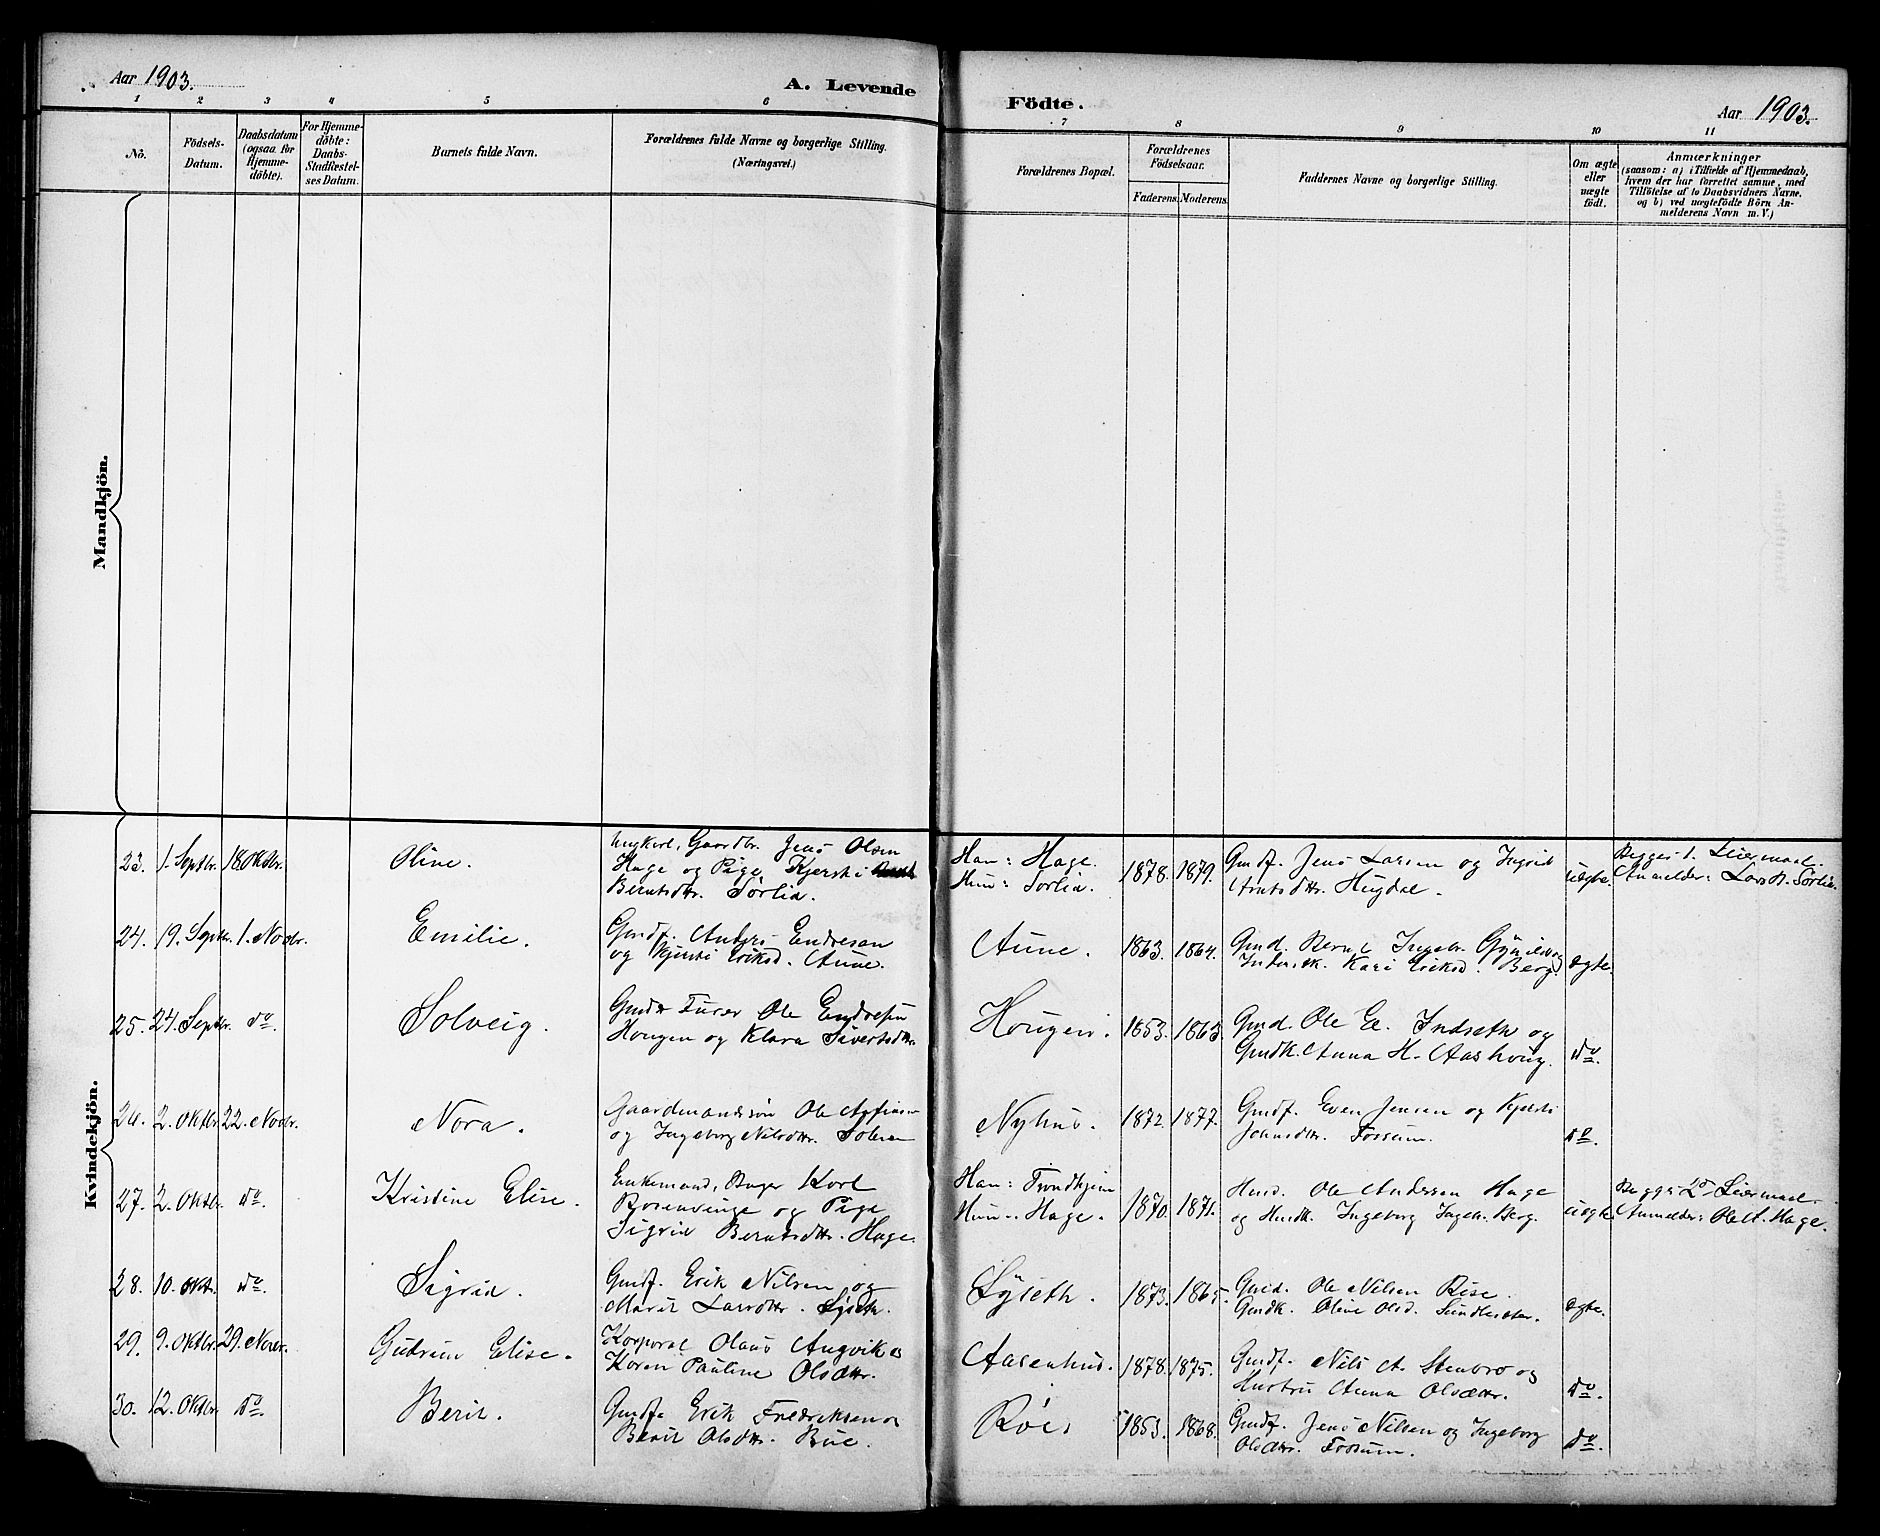 Aar 1903.
A. Levende
Födte.
Aar 1903.
1 2 3 4 5 6 7 8 9 10 11
No.
Födsels-
Datum.
Daabsdatum
(ogsaa for
Hjemme-
döbte).
For Hjemme-
döbte:
Daabs-
Stadfæstel-
ses Datum.
Barnets fulde Navn.
Forældrenes fulde Navne og borgerlige Stilling.
(Næringsvei.)
Forældrenes Bopæl.
Forældrenes
Födselsaar.
Faderens. Moderens.
Faddernes Navne og borgerlige Stilling.
Om ægte
eller
uægte
födt.
Anmærkninger
(saasom: a) i Tilfælde af Hjemmedaab,
hvem der har forrettet samme, med
Tilföielse af to Daabsvidners Navne.
og b) ved uægtefödte Börn An-
melderens Navn m. V.)
Mandkjön.
Kvindekjön.
23. 1. Septbr. 18 Oktbr.
Oline.
Ungkarl, Gaardbr. Jens Olsen
Hage og Pige Kjersti
Berntsdtr. Sørlia.
Han: Hage.
Hun: Sørlia.
1878. 1879.
Gmdf. Jens Larsen og Ingrid
Arntsdtr. Hugdal.
uægte.
Begges 1. Leiermaal.
Anmelder: Lars B. Sørlia.
24. 19. Septbr. 1. Novbr.
Emilie.
Gmdf. Anders Endresen
og Kjersti Eriksd. Aune.
Aune.
1863. 1864.
Gmd. Bernt Ingebr.
Kari Eriksd. Berg.
ægte.
25. 24. Septbr. do.
Solveig.
Ole Endresen
Hougen og Klara Sivertsdtr.
Hougen.
1853. 1863.
Gmd. Ole E. Indseth og
Gmdk. Anna H. Aashoug.
do.
26. 2. Oktbr. 22. Novbr.
Nora.
Gaardmandssøn Ole
og Ingeborg Nilsdtr. Solem
Nyhus.
1872. 1877.
Gmdf. Even Jensen og Kjersti
Johnsdtr. Fossum.
do.
27. 2. Oktbr. do.
Kristine Elise.
Enkemand, Bager Karl
Rosenvinge og Pige
Sigrid Berntsdtr. Hage.
Han: Trondhjem
Hun: Hage.
1870. 1871.
Husd. Ole Andersen Hage
og Husdk. Ingeborg Ingebr. Berg.
uægte.
Begges 2. Leiermaal.
Anmelder: Ole A. Hage.
28. 10. Oktbr. do.
Sigrid.
Gmdf. Erik Nilsen og
Marit Larsdtr. Lyseth.
Lyseth.
1873. 1865.
Gmd. Ole Nilsen Rise.
Gmdk. Oline Olsd.
ægte.
29. 9. Oktbr. 29. Novbr.
Gudrun Elise.
Korporal Olaus Angvik og
Karen Pauline Olsdtr.
Aasenhus.
1878. 1875.
Gmdf. Nils A. Stenbro og
Hustru Anna Olsdtr.
do.
30. 12. Oktbr. do.
Berit.
Gmdf. Erik Fredriksen og
Berit Olsdtr. Bue.
1853. 1868.
Gmdf. Jens Nilsen og Ingeborg
Olsdtr. Fossum.
do.